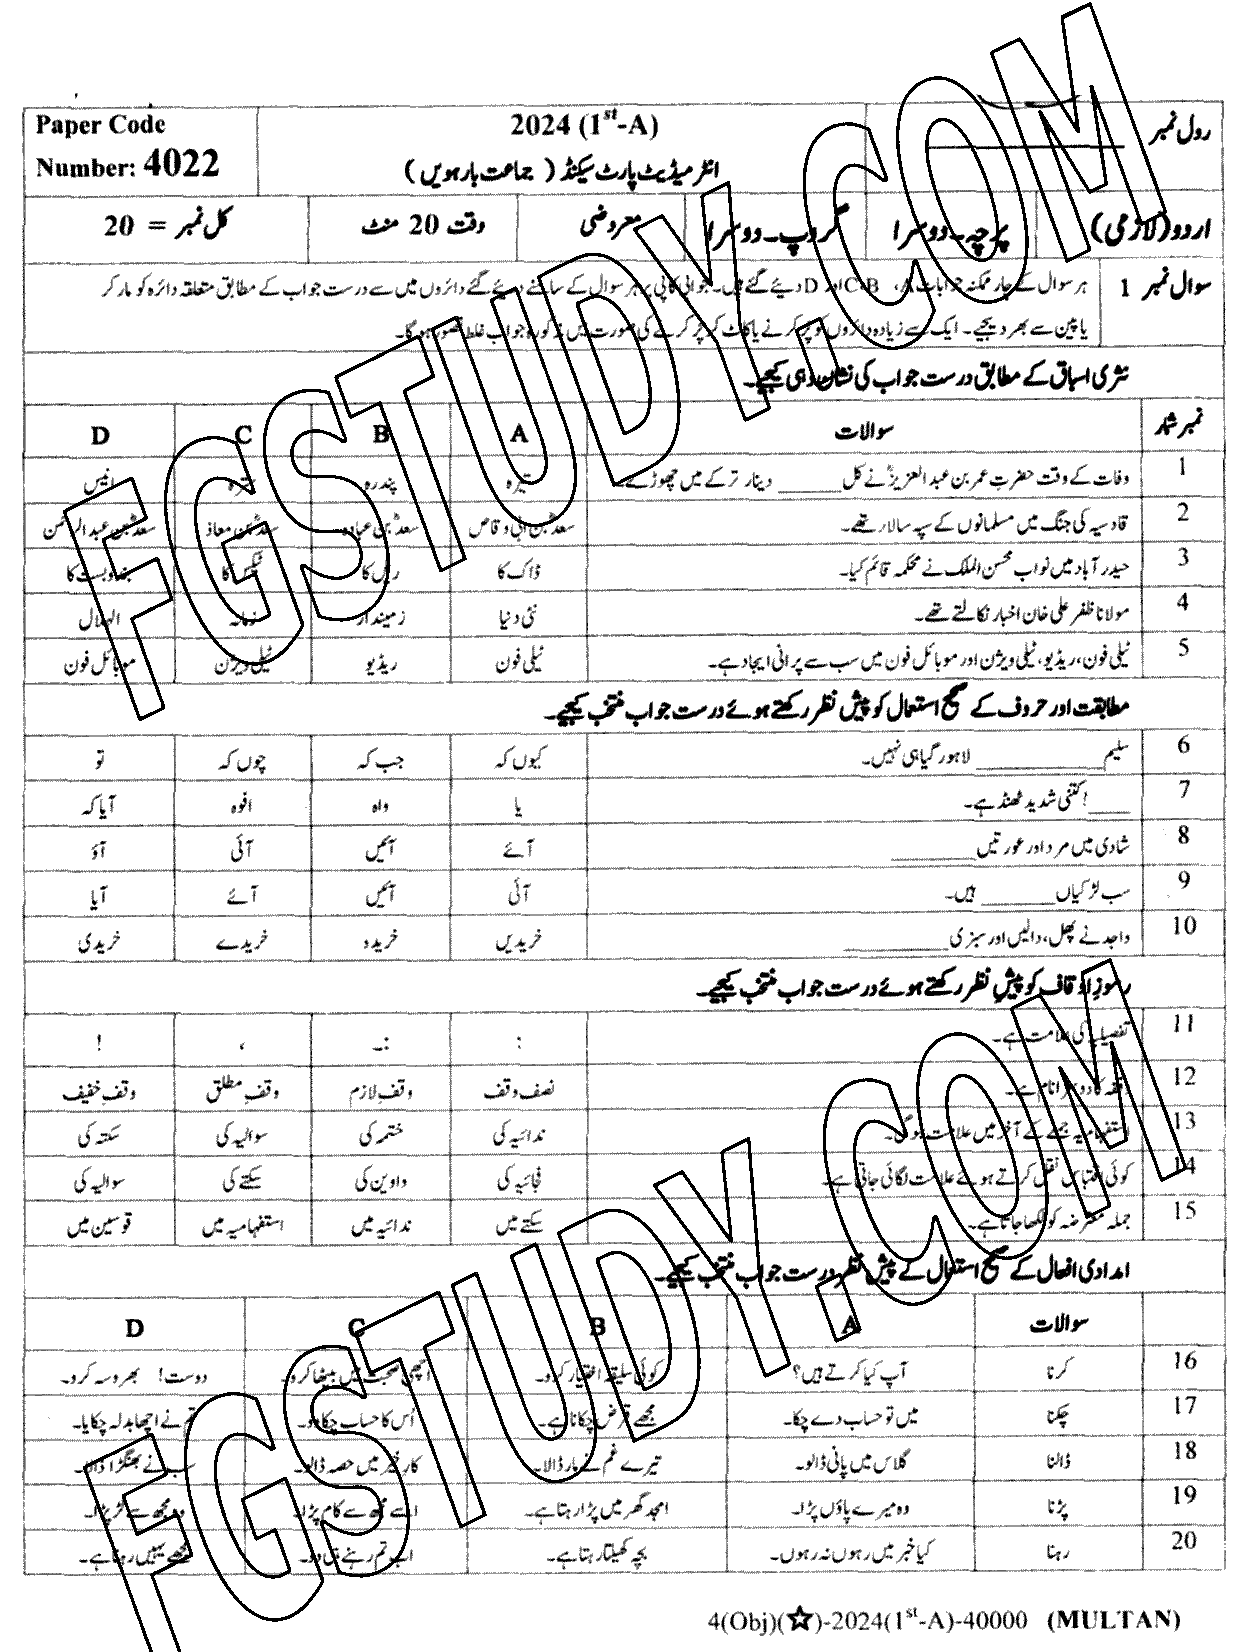 Paper Code
Number: 4022
2024 (1st-A)
انٹرمیڈیٹ پارٹ سیکنڈ ( جماعت بارہویں )
رول نمبر
اردو(لازمی) پرچہ۔دوسرا گروپ۔دوسرا معروضی وقت 20 منٹ کل نمبر = 20
سوال نمبر 1 ہر سوال کے چار ممکنہ جوابات A، C،B اور D دیئے گئے ہیں۔ جوابی کاپی پر ہر سوال کے سامنے دیئے گئے دائروں میں سے درست جواب کے مطابق متعلقہ دائرہ کو مارکر
یا پین سے بھر دیجیے۔ ایک سے زیادہ دائروں کو پُر کرنے یا کاٹ کر پُر کرنے کی صورت میں مذکورہ جواب غلط تصور ہوگا۔
نثری اسباق کے مطابق درست جواب کی نشاندہی کیجیے۔
نمبر شمار سوالات A B C D
1 وفات کے وقت حضرت عمر بن عبدالعزیزؒ نے کل ______ دینار ترکے میں چھوڑے۔ پندرہ سترہ انیس
2 قادسیہ کی جنگ میں مسلمانوں کے سپہ سالار تھے۔ سعدؓ بن ابی وقاص سعدؓ بن عبادہ سعدؓ بن معاذ سعدؓ بن عبدالرحمٰن
3 حیدر آباد میں نواب محسن الملک نے محکمہ قائم کیا۔ ڈاک کا ریل کا ٹیکس کا بندوبست کا
4 مولانا ظفر علی خان اخبار نکالتے تھے۔ نئی دنیا زمیندار زمانہ الہلال
5 ٹیلی فون، ریڈیو، ٹیلی ویژن اور موبائل فون میں سب سے پرانی ایجاد ہے۔ ٹیلی فون ریڈیو ٹیلی ویژن موبائل فون
مطابقت اور حروف کے صحیح استعمال کو پیش نظر رکھتے ہوئے درست جواب منتخب کیجیے۔
6 سلیم ____________ لاہور گیا ہی نہیں۔ کیوں کہ جب کہ چوں کہ تو
7 ____! کتنی شدید ٹھنڈ ہے۔ یا واہ افوہ آیا کہ
8 شادی میں مرد اور عورتیں ________ آئے آئیں آئی آؤ
9 سب لڑکیاں _______ ہیں۔ آئی آئیں آئے آیا
10 واجد نے پھل، دالیں اور سبزی __________ خریدیں خریدہ خریدے خریدی
رموزِ اوقاف کو پیشِ نظر رکھتے ہوئے درست جواب منتخب کیجیے۔
11 تفصیلیہ کی علامت ہے۔ : :۔ ، !
12 وقفہ کا دوسرا نام ہے۔ نصف وقف وقفِ لازم وقفِ مطلق وقفِ خفیف
13 استفہامیہ جملے کے آخر میں علامت ہوگی۔ ندائیہ کی ختمہ کی سوالیہ کی سکتہ کی
14 کوئی اقتباس نقل کرتے ہوئے علامت لگائی جاتی ہے۔ فجائیہ کی داوین کی سکتے کی سوالیہ کی
15 جملہ معترضہ کو لکھا جاتا ہے۔ سکتے میں ندائیہ میں استفہامیہ میں قوسین میں
امدادی افعال کے صحیح استعمال کے پیش نظر درست جواب منتخب کیجیے۔
سوالات A B C D
16 کرنا آپ کیا کرتے ہیں؟ کوئی سلیقہ اختیار کرو۔ اچھی صحبت میں بیٹھا کرو۔ دوست! بھروسہ کرو۔
17 چکنا میں تو حساب دے چکا۔ مجھے قرض چکانا ہے۔ اُس کا حساب چکا دو۔ تم نے اچھا بدلہ چکایا۔
18 ڈالنا گلاس میں پانی ڈالو۔ تیرے غم نے مار ڈالا۔ کارِ خیر میں حصہ ڈالو۔ سب نے بھنگڑا ڈالا۔
19 پڑنا وہ میرے پاؤں پڑا۔ امجد گھر میں پڑا رہتا ہے۔ اسے مجھ سے کام پڑا۔ وہ مجھ سے لڑ پڑا۔
20 رہنا کیا خبر میں رہوں نہ رہوں۔ بچہ کھیلتا رہتا ہے۔ اب تم رہنے بھی دو۔ مجھے یہیں رہنا ہے۔
4(Obj)(☆)-2024(1st-A)-40000 (MULTAN)
FGSTUDY.COM
FGSTUDY.COM